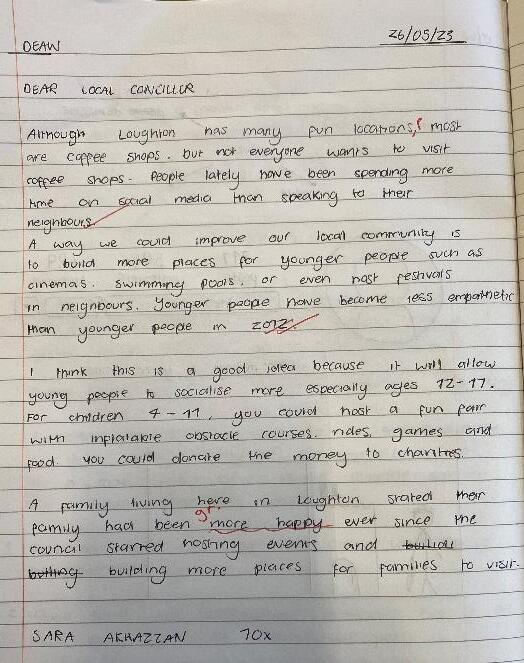 26/05/23
DEAW
DEAR LOCAL CONCILLER
Although Loughton has many fun locations, most
are coffee shops. but not everyone wants to visit
coffee shops. People lately have been spending more
time on social media than speaking to their
neighbours
A way we could improve our local community is
to build more places for younger people such as
cinemas. swimming pools. or even host festivals
in neighbours. Younger people have become less empathetic
than younger people in 2012.
I think this is a good idea because it will allow
young people to socialise more especially ages 12-17.
For children 4-11, you could host a fun fair
with inflatable obstacle courses. rides, games and
food. you could donate the money to charities.
A family living here in Loughton stated their
gr.
family had been more happy ever since the
council started hosting events and
building more places for families to visit.
SARA AKHAZZAN 10x